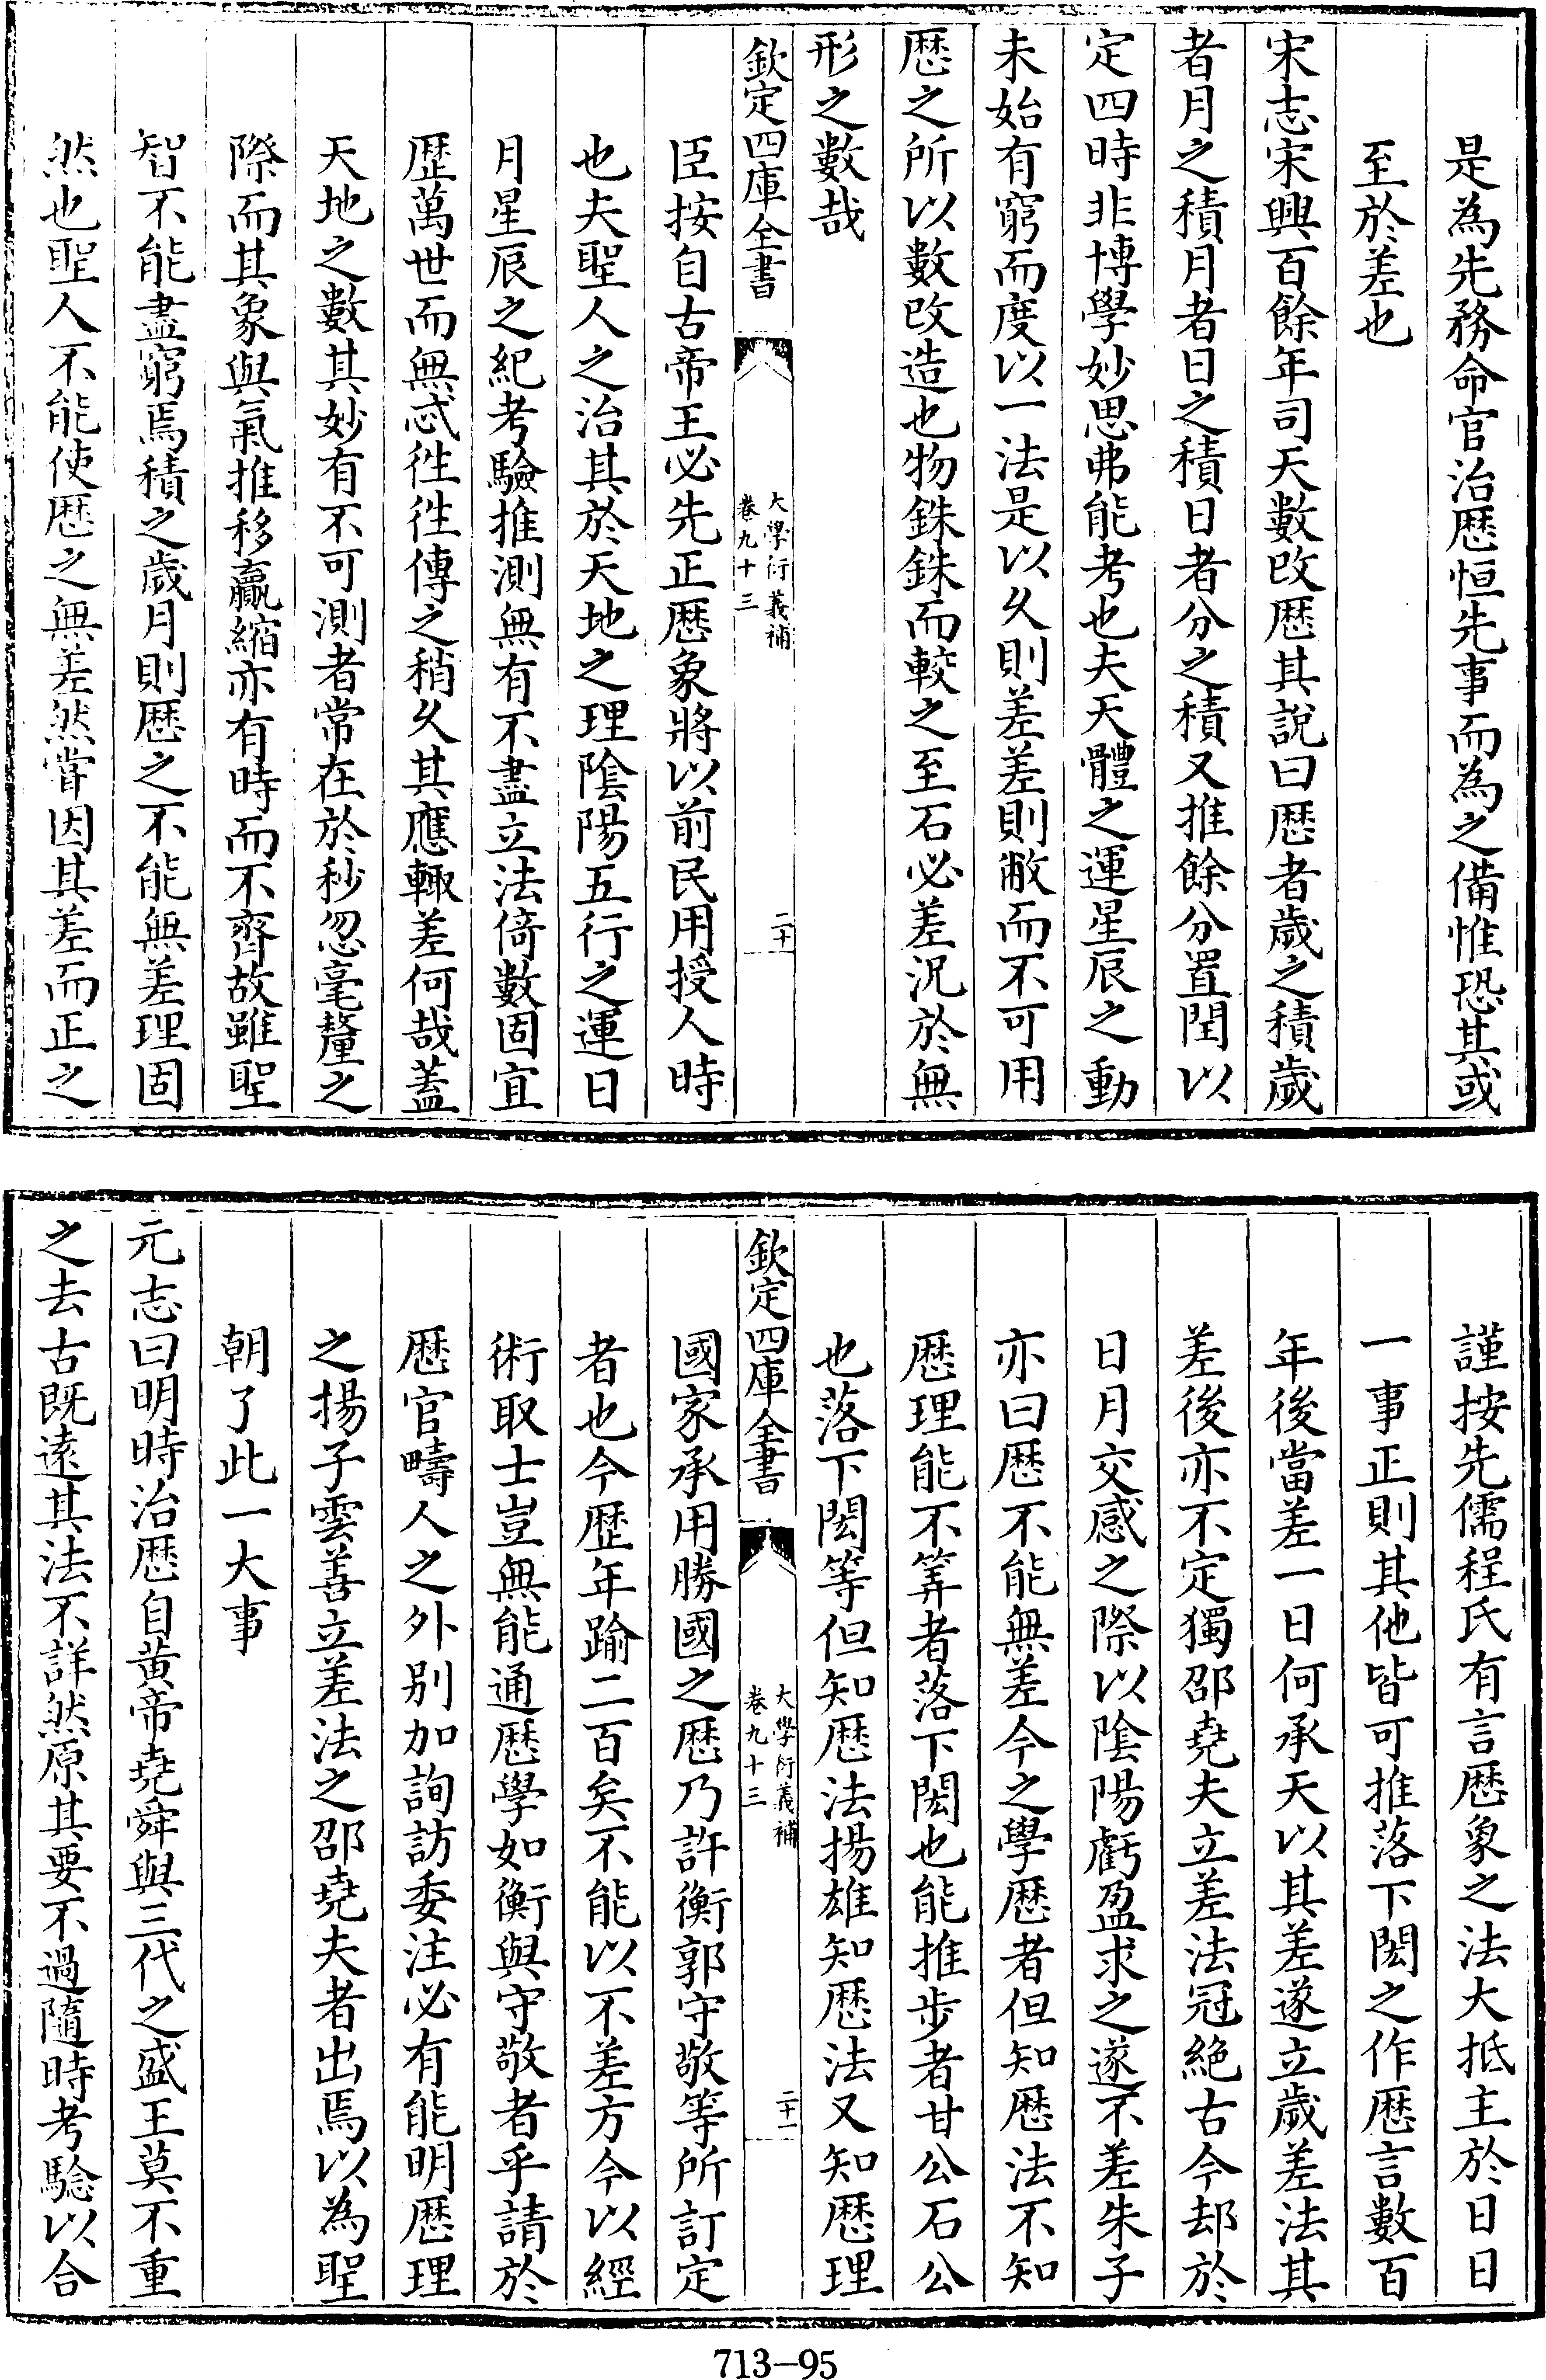 是為先務命官治歴恒先事而為之備惟恐其或
至於差也
宋志宋興百餘年司天數改歴其說曰歴者歲之積歲
者月之積月者日之積日者分之積又推餘分置閏以
定四時非博學妙思弗能考也夫天體之運星辰之動
未始有窮而度以一法是以乆則差差則敝而不可用
歴之所以數改造也物銖銖而較之至石必差况於無
形之數哉
欽定四庫全書
大學衍義補
卷九十三
二十
臣按自古帝王必先正歴象將以前民用授人時
也夫聖人之治其於天地之理隂陽五行之運日
月星辰之紀考驗推測無有不盡立法倚數固宜
歴萬世而無忒徃徃傳之稍乆其應輙差何哉葢
天地之數其妙有不可測者常在於秒忽毫釐之
際而其象與氣推移贏縮亦有時而不齊故雖聖
智不能盡窮焉積之歲月則歴之不能無差理固
然也聖人不能使歴之無差然嘗因其差而正之
謹按先儒程氏有言歴象之法大抵主於日日
一事正則其他皆可推落下閎之作歴言數百
年後當差一日何承天以其差遂立歲差法其
差後亦不定獨邵堯夫立差法冠絶古今却於
日月交感之際以隂陽虧盈求之遂不差朱子
亦曰歴不能無差今之學歴者但知歴法不知
歴理能不筭者落下閎也能推步者甘公石公
也落下閎等但知歴法揚雄知歴法又知歴理
欽定四庫全書
大學衍義補
卷九十三
二十一
國家承用勝國之歴乃許衡郭守敬等所訂定
者也今歴年踰二百矣不能以不差方今以經
術取士豈無能通歴學如衡與守敬者乎請於
歴官疇人之外别加詢訪委注必有能明歴理
之揚子雲善立差法之邵堯夫者出焉以為聖
朝了此一大事
元志曰明時治歴自黄帝堯舜與三代之盛王莫不重
之去古既逺其法不詳然原其要不過隨時考驗以合
713-95